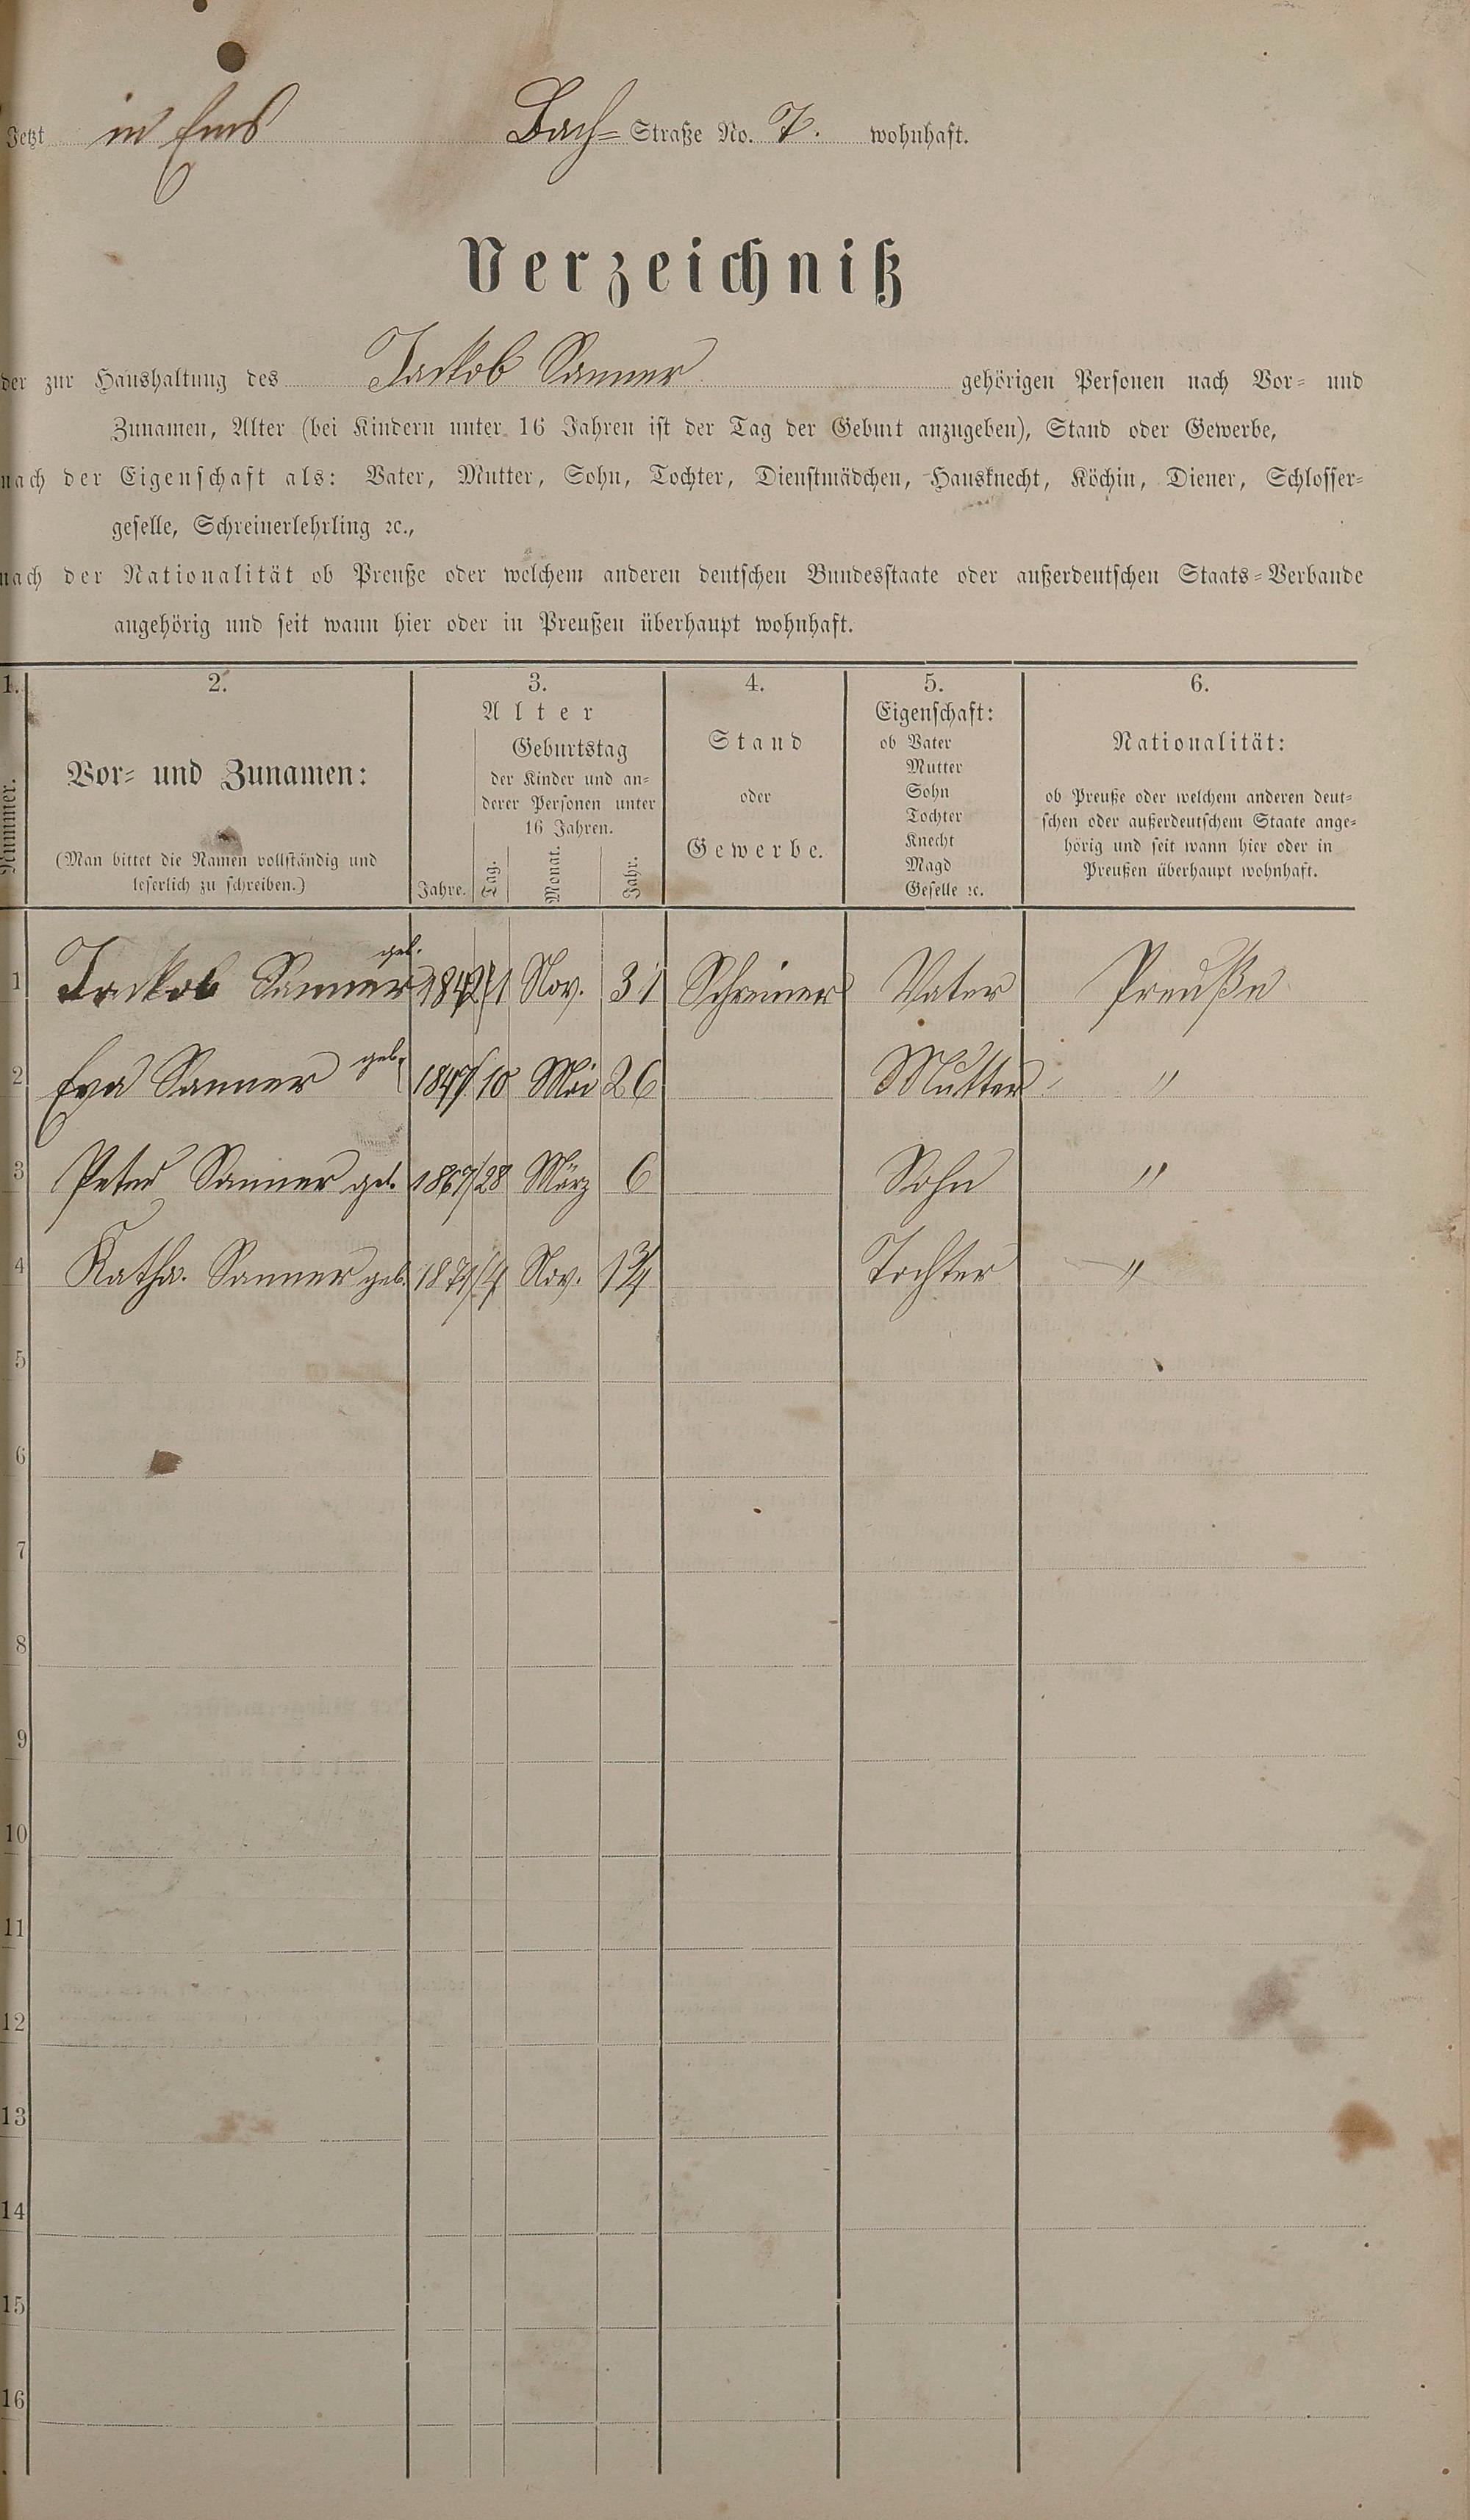 Jetzt in Ems Bach= Straße No. 7. wohnhaft.
Verzeichniß
der zur Haushaltung des Jackob Sanner gehörigen Personen nach Vor- und
Zunamen, Alter (bei Kindern unter 16 Jahren ist der Tag der Geburt anzugeben), Stand oder Gewerbe,
nach der Eigenschaft als: Vater, Mutter, Sohn, Tochter, Dienstmädchen, Hausknecht, Köchin, Diener, Schlosser-
geselle, Schreinerlehrling ꝛc.,
nach der Nationalität ob Preuße oder welchem anderen deutschen Bundesstaate oder außerdeutschen Staats-Verbande
angehörig und seit wann hier oder in Preußen überhaupt wohnhaft.
1. 2. 3. 4. 5. 6.
Nummer.
Vor- und Zunamen:
(Man bittet die Namen vollständig und
leserlich zu schreiben.)
Alter
Geburtstag
der Kinder und an-
derer Personen unter
16 Jahren.
Jahre. Tag. Monat. Jahr.
Stand
oder
Gewerbe.
Eigenschaft:
ob Vater
Mutter
Sohn
Tochter
Knecht
Magd
Geselle ꝛc.
Nationalität:
ob Preuße oder welchem anderen deut-
schen oder außerdeutschem Staate ange-
hörig und seit wann hier oder in
Preußen überhaupt wohnhaft.
1 Jackob Sanner geb. 1842 Nov. 31 Schreiner Vater Preuße
2 Eva Sanner geb. 1847/10 Mai 26 Mutter "
3 Peter Sanner geb. 1867/28 März 6 Sohn "
4 Katha. Sanner geb. 1871/4 Nov. 1¾ Tochter "
5
6
7
8
9
10
11
12
13
14
15
16